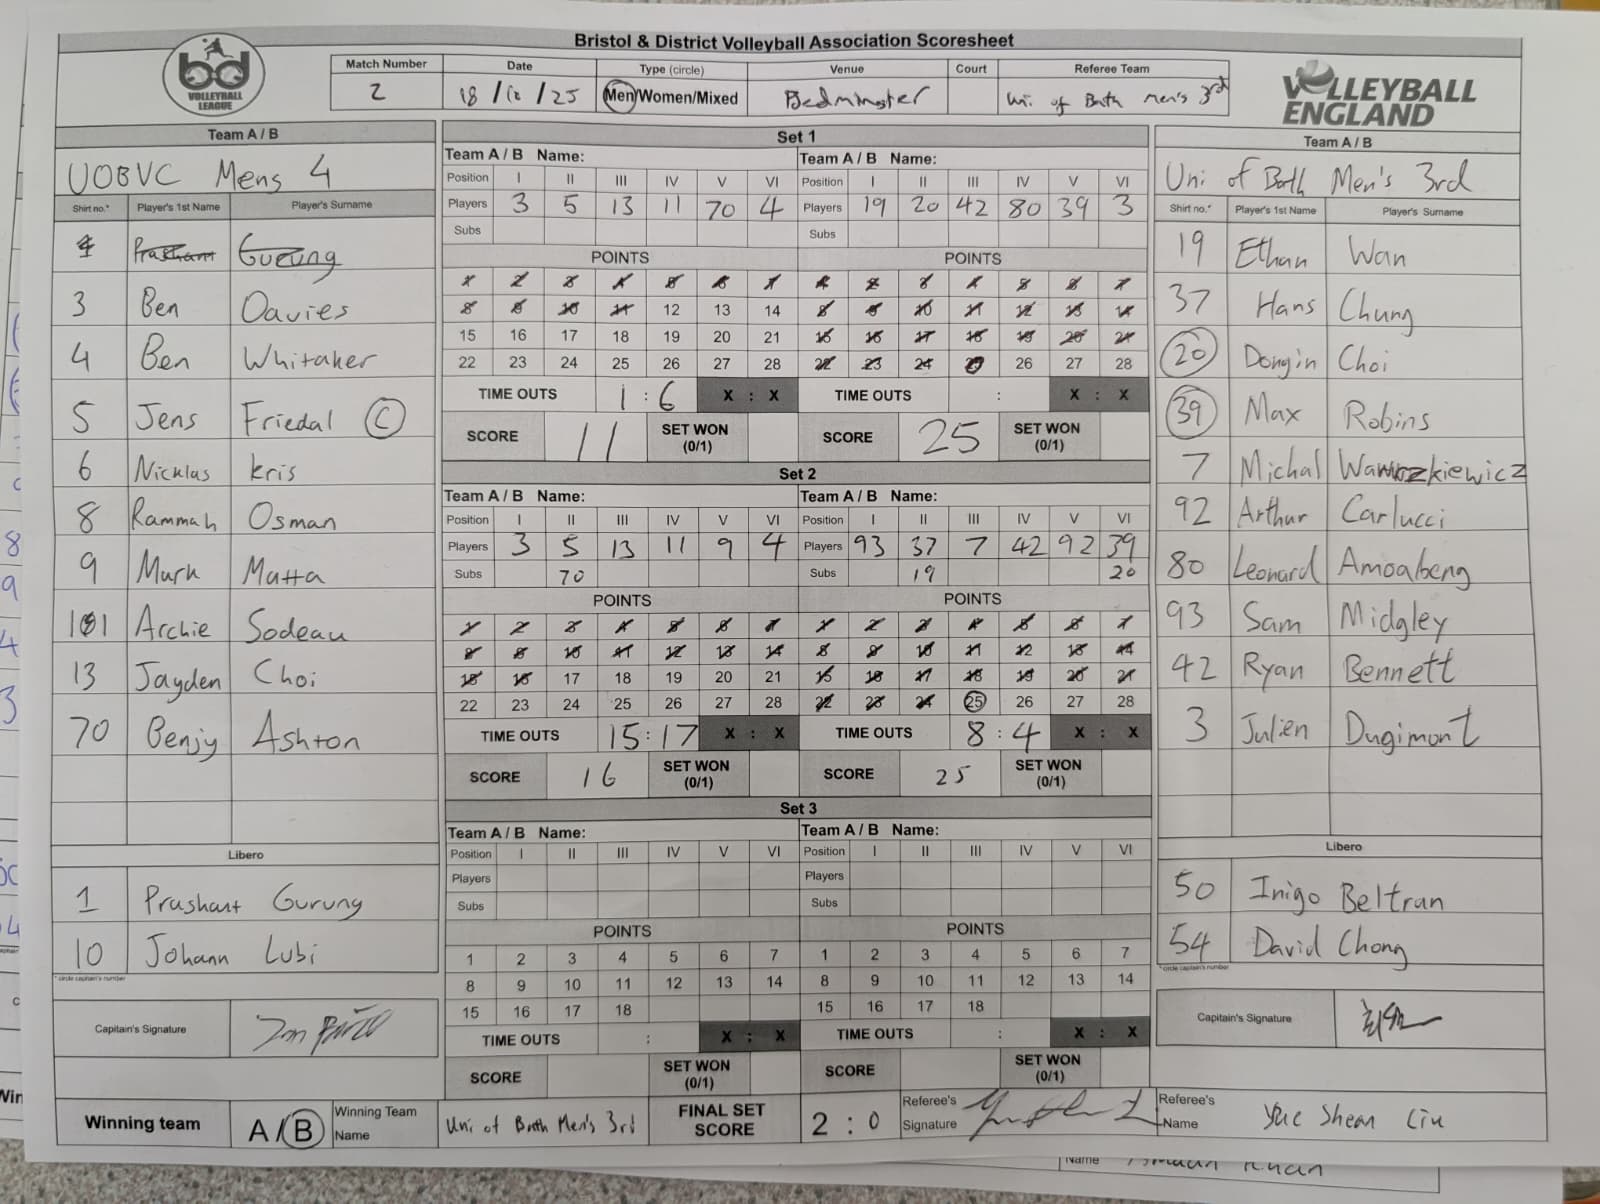 Bristol & District Volleyball Association Scoresheet
bd VOLLEYBALL LEAGUE
Match Number Date Type (circle) Venue Court Referee Team
2 18/12/25 Men/Women/Mixed Bedminster Uni of Bath Men's 3rd
VOLLEYBALL ENGLAND
Team A / B
UOBVC Mens 4
Shirt no.* Player's 1st Name Player's Surname
1 Prashant Gurung
3 Ben Davies
4 Ben Whitaker
5 Jens Friedal C
6 Nicklas Kris
8 Rammah Osman
9 Mark Matta
Archie Sodeau
13 Jayden Choi
70 Benjy Ashton
Libero
1 Prashant Gurung
10 Johann Lubi
* circle captain's number
Capitain's Signature
Set 1
Team A / B Name: Team A / B Name:
Position I II III IV V VI Position I II III IV V VI
Players 3 5 13 11 70 4 Players 19 20 42 80 39 3
Subs Subs
POINTS POINTS
1 2 3 4 5 6 7 1 2 3 4 5 6 7
8 9 10 11 12 13 14 8 9 10 11 12 13 14
15 16 17 18 19 20 21 15 16 17 18 19 20 21
22 23 24 25 26 27 28 22 23 24 25 26 27 28
TIME OUTS 1 : 6 X : X TIME OUTS : X : X
SCORE 11 SET WON (0/1) SCORE 25 SET WON (0/1)
Set 2
Team A / B Name: Team A / B Name:
Position I II III IV V VI Position I II III IV V VI
Players 3 5 13 11 9 4 Players 93 37 7 42 92 39
Subs 70 Subs 19 20
POINTS POINTS
1 2 3 4 5 6 7 1 2 3 4 5 6 7
8 9 10 11 12 13 14 8 9 10 11 12 13 14
15 16 17 18 19 20 21 15 16 17 18 19 20 21
22 23 24 25 26 27 28 22 23 24 25 26 27 28
TIME OUTS 15:17 X : X TIME OUTS 8:4 X : X
SCORE 16 SET WON (0/1) SCORE 25 SET WON (0/1)
Set 3
Team A / B Name: Team A / B Name:
Position I II III IV V VI Position I II III IV V VI
Players Players
Subs Subs
POINTS POINTS
1 2 3 4 5 6 7 1 2 3 4 5 6 7
8 9 10 11 12 13 14 8 9 10 11 12 13 14
15 16 17 18 15 16 17 18
TIME OUTS : X : X TIME OUTS : X : X
SCORE SET WON (0/1) SCORE SET WON (0/1)
Team A / B
Uni of Bath Men's 3rd
Shirt no.* Player's 1st Name Player's Surname
19 Ethan Wan
37 Hans Chung
20 Dongin Choi
39 Max Robins
7 Michal Wawrzkiewicz
92 Arthur Carlucci
80 Leonard Amoabeng
93 Sam Midgley
42 Ryan Bennett
3 Julien Dugimont
Libero
50 Inigo Beltran
54 David Chong
* circle captain's number
Capitain's Signature
Winning team A/B Winning Team Name Uni of Bath Men's 3rd FINAL SET SCORE 2 : 0 Referee's Signature Referee's Name Yue Shean Liu
Name Khan